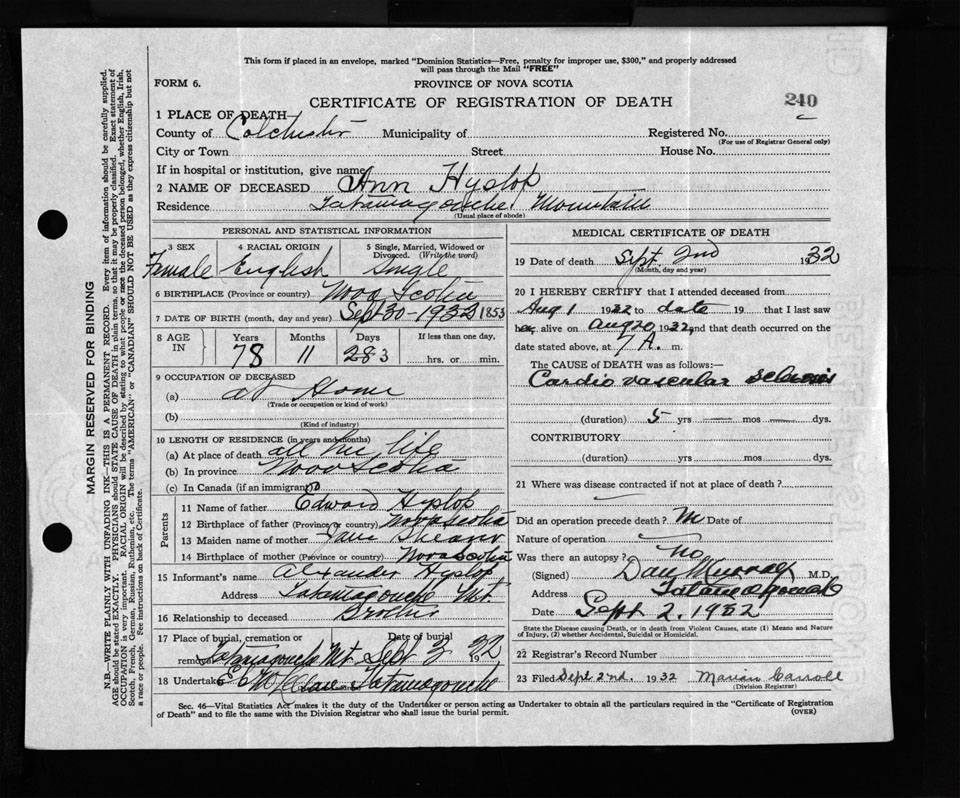 This form if placed in an envelope, marked "Dominion Statistics—Free, penalty for improper use, $300," and properly addressed
will pass through the Mail "FREE"
FORM 6. PROVINCE OF NOVA SCOTIA
CERTIFICATE OF REGISTRATION OF DEATH 240
1 PLACE OF DEATH
County of Colchester Municipality of Registered No.
(For use of Registrar General only)
City or Town Street House No.
If in hospital or institution, give name
2 NAME OF DECEASED Ann Hyslop
Residence Tatamagouche Mountain
(Usual place of abode)
PERSONAL AND STATISTICAL INFORMATION
3 SEX 4 RACIAL ORIGIN 5 Single, Married, Widowed or
Divorced. (Write the word)
Female English Single
6 BIRTHPLACE (Province or country) Nova Scotia
7 DATE OF BIRTH (month, day and year) Sept 30-1932 1853
8 AGE IN Years Months Days If less than one day,
78 11 28 3 hrs. or min.
9 OCCUPATION OF DECEASED
(a) at Home
(Trade or occupation or kind of work)
(b)
(Kind of industry)
10 LENGTH OF RESIDENCE (in years and months)
(a) At place of death all her life
(b) In province Nova Scotia
(c) In Canada (if an immigrant)
Parents
11 Name of father Edward Hyslop
12 Birthplace of father (Province or country) Nova Scotia
13 Maiden name of mother Jane
14 Birthplace of mother (Province or country) Nova Scotia
15 Informant's name Alexander Hyslop
Address Tatamagouche Mt
16 Relationship to deceased Brother
17 Place of burial, cremation or Date of burial
removal Tatamagouche Mt Sept 3 1932
18 Undertaker Tatamagouche
MEDICAL CERTIFICATE OF DEATH
19 Date of death Sept. 2nd 1932
(Month, day and year)
20 I HEREBY CERTIFY that I attended deceased from
Aug 1 1932 to date 19 that I last saw
her alive on Aug 20 1932, and that death occurred on the
date stated above, at 7 A. m.
The CAUSE OF DEATH was as follows:—
Cardio vascular sclerosis
(duration) 5 yrs mos dys.
CONTRIBUTORY
(duration) yrs. mos. dys.
21 Where was disease contracted if not at place of death?
Did an operation precede death? Date of
Nature of operation
Was there an autopsy? No
(Signed) Dan Murray M.D.
Address Tatamagouche
Date Sept 2, 1932
State the Disease causing Death, or in death from Violent Causes, state (1) Means and Nature
of Injury, (2) whether Accidental, Suicidal or Homicidal.
22 Registrar's Record Number
23 Filed Sept 2nd. 1932 Marian Carroll
(Division Registrar)
Sec. 46—Vital Statistics Act makes it the duty of the Undertaker or person acting as Undertaker to obtain all the particulars required in the "Certificate of Registration
of Death" and to file the same with the Division Registrar who shall issue the burial permit. (OVER)
MARGIN RESERVED FOR BINDING
N.B.—WRITE PLAINLY WITH UNFADING INK—THIS IS A PERMANENT RECORD. Every item of information should be carefully supplied.
AGE should be stated EXACTLY. PHYSICIANS should STATE CAUSE OF DEATH in plain terms, so that it may be properly classified. Exact statement of
OCCUPATION is very important. RACIAL ORIGIN will be described by stating to what people or race the deceased person belonged, whether English, Irish,
Scotch, French, German, Russian, Ruthenian, etc. The terms "AMERICAN" or "CANADIAN" SHOULD NOT BE USED as they express citizenship but not
a race or people. See instructions on back of Certificate.